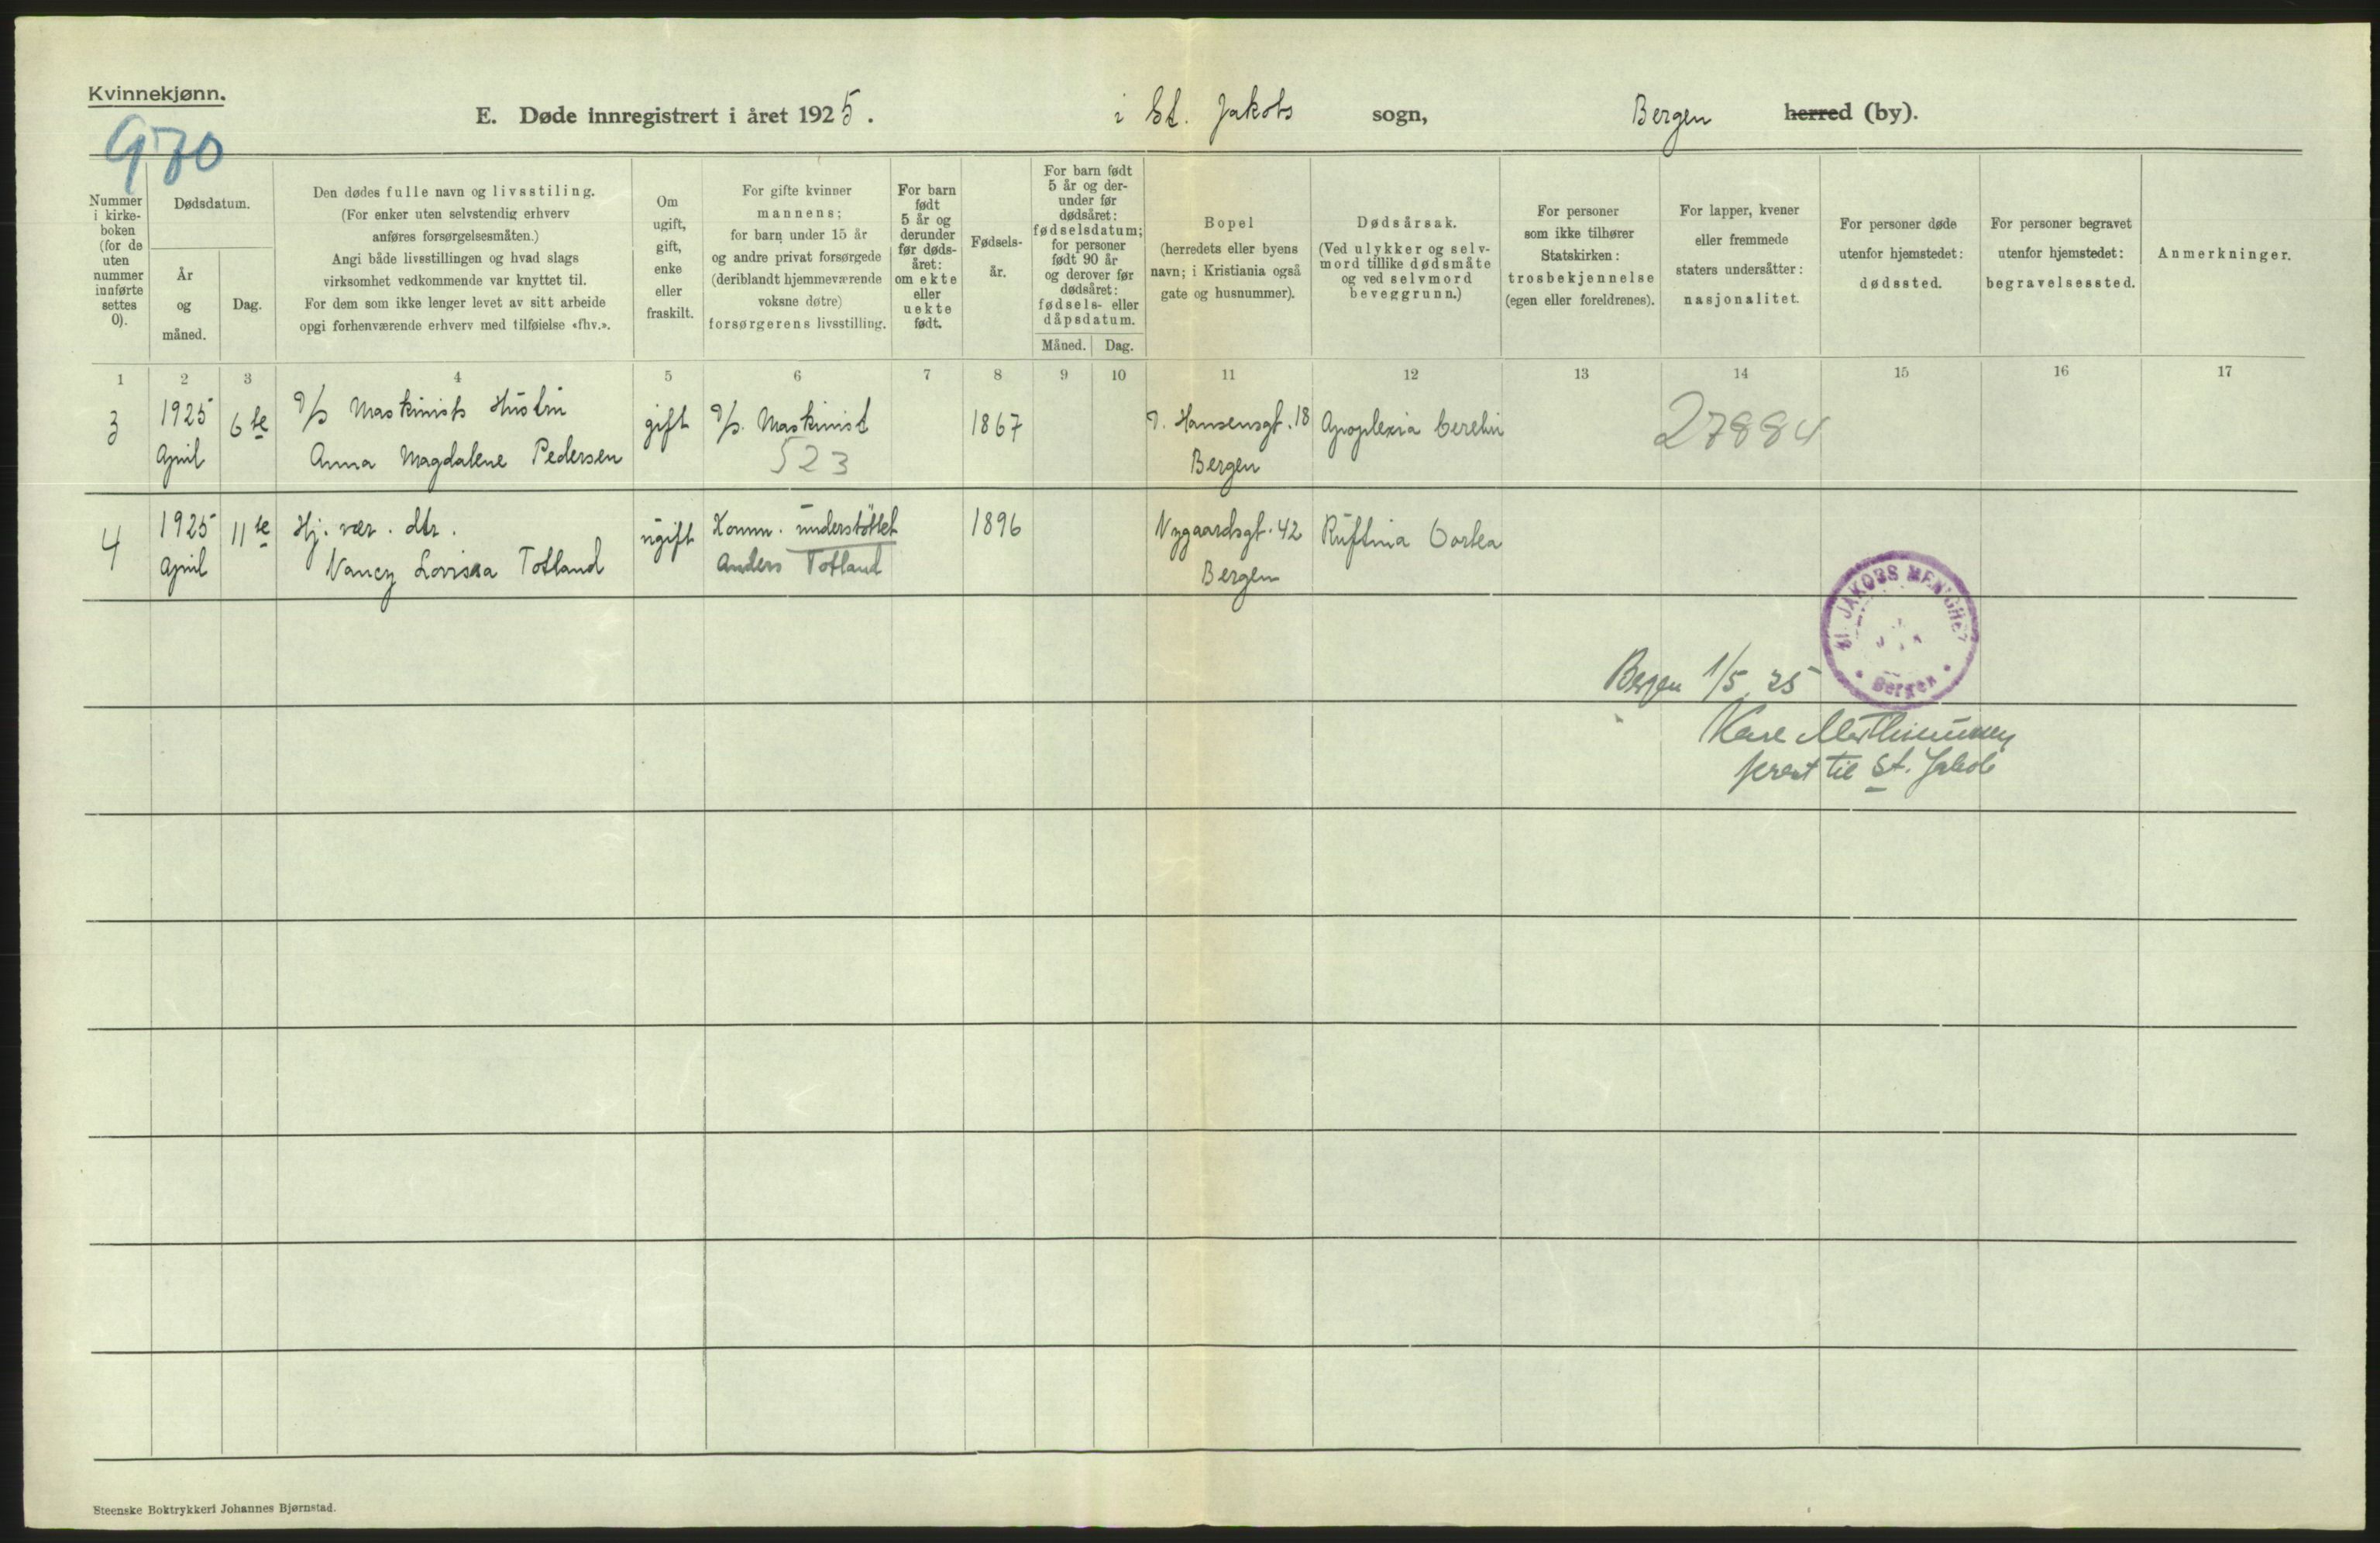 Kvinnekjønn.
970
E. Døde innregistrert i året 1925. i St. Jakobs sogn, Bergen herred (by).
Nummer i kirke-boken (for de uten nummer innførte settes 0).
Dødsdatum.
År og måned.
Dag.
Den dødes fulle navn og livsstiling.
(For enker uten selvstendig erhverv
anføres forsørgelsesmåten.)
Angi både livsstillingen og hvad slags
virksomhet vedkommende var knyttet til.
For dem som ikke lenger levet av sitt arbeide
opgi forhenværende erhverv med tilføielse «fhv.».
Om
ugift,
gift,
enke
eller
fraskilt.
For gifte kvinner
mannens;
for barn under 15 år
og andre privat forsørgede
(deriblandt hjemmeværende
voksne døtre)
forsørgerens livsstilling.
For barn
født
5 år og
derunder
før døds-
året:
om ekte
eller
uekte
født.
Fødsels-
år.
For barn født
5 år og der-
under før
dødsåret:
fødselsdatum;
for personer
født 90 år
og derover før
dødsåret:
fødsels- eller
dåpsdatum.
Måned. Dag.
Bopel
(herredets eller byens
navn; i Kristiania også
gate og husnummer).
Dødsårsak.
(Ved ulykker og selv-
mord tillike dødsmåte
og ved selvmord
beveggrunn.)
For personer
som ikke tilhører
Statskirken:
trosbekjennelse
(egen eller foreldrenes).
For lapper, kvener
eller fremmede
staters undersåtter:
nasjonalitet.
For personer døde
utenfor hjemstedet:
dødssted.
For personer begravet
utenfor hjemstedet:
begravelsessted.
Anmerkninger.
1 2 3 4 5 6 7 8 9 10 11 12 13 14 15 16 17
3
1925
April
6te
D/S Maskinists Hustru
Anna Magdalene Pedersen
gift
D/S. Maskinist
523
1867
Hansensgt. 18
Bergen
Apoplexia Cerebri
27884
4
1925
April
11te
Hj. vær. dtr.
Nancy Lovisa Totland
ugift
Komm. understøttet
Anders Totland
1896
Nygaardsgt. 42
Bergen
Ruptura Aorta
ST. JAKOBS MENIGHET
Bergen
Bergen 1/5 25
prest til St. Jakob
Steenske Boktrykkeri Johannes Bjørnstad.